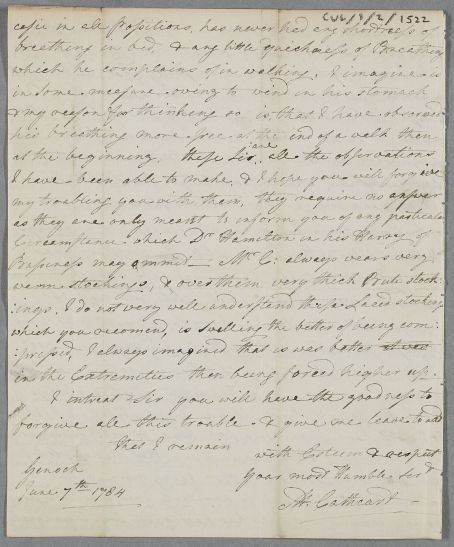 CUL/1/2/1522
easie in all Positions, has never had any shortness of
breathing in bed, & any little quickness of Breathing
which he complains of in walking, I imagine is
in some measure owing to wind in his stomach
& my reason for thinking so is that I have observed
his breathing more free at the end of a walk than
at the beginning. these Sir, are all the observations
I have been able to make, & I hope you will forgive
my troubling you with them, they require no answer
as they are only meant to inform you of any particular
Circumstance which Dr Hamilton in his Hurry of
Bussiness may ommit — Mr C: always wears very
warm stockings, & over them very thick Boot stock-
ings, I do not very well understand these Laced stockings
which you recomend, is swelling the better of being com-
pressed, I always imagined that is was better
in the Extremities then being forced higher up.
I intreat Sir you will have the goodness to
forgive all this trouble & give me leave to add
that I remain
with Esteem & respect
Genoch
your most Humble Sert
June 7th 1784
M. Cathcart